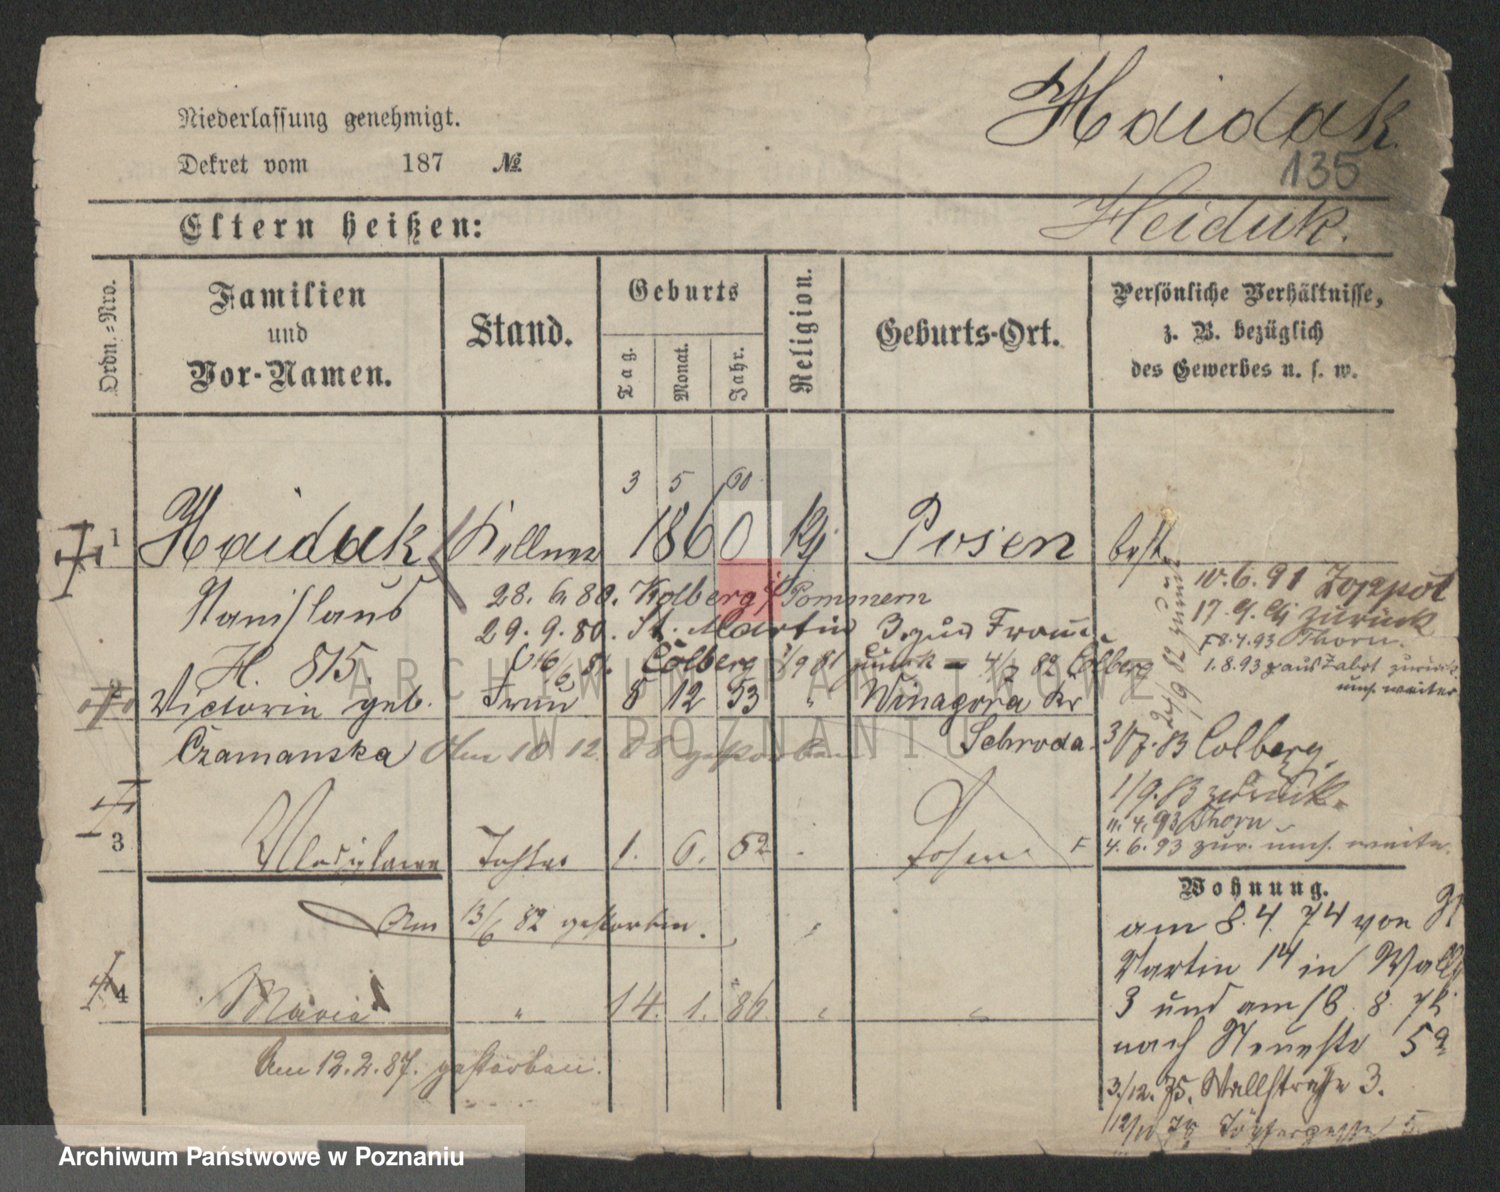 Haidak
Niederlassung genehmigt.
Dekret vom 187 №
135
Heiduk.
Eltern heißen:
Ordn.-Nro.
Familien
und
Vor-Namen.
Stand.
Geburts
Tag.
Monat.
Jahr.
Religion.
Geburts-Ort.
Persönliche Verhältnisse,
z. B. bezüglich
des Gewerbes u. s. w.
3 5 60
1 Haidak Kellner 1860 Posen
Stanislaus
28. 6. 80. Kolberg i/ Pommern
10. 6. 91 Zoppot
29. 9. 80. St. Martin 3. zus Frau
zurück
H. 815. Colberg zurück 82 Colberg
8.4.93 Thorn.
1.8.93 zurück
umh. weiter
2 Victorin geb. Frau 8 12 53 " Winagora Kr
Czamanska Am 10 12. 88 gestorben Schroda
83 Colberg.
1/9. 83 zurück
4. 93 Thorn
3 Wladislawa Tochter 1. 6. 82 Posen
4. 6. 93 zur. umh. weiter.
Am 13/6 82 gestorben.
Wohnung.
am 8. 4. 74 von St
Martin 14 in Wall
3 und am 16. 8. 74
nach Neuestr 5a
3/12. 75. Wallstraße 3.
4 Maria " 14. 1. 86.
Am 12. 2. 87. gestorben.
ARCHIWUM PAŃSTWOWE
W POZNANIU
Archiwum Państwowe w Poznaniu